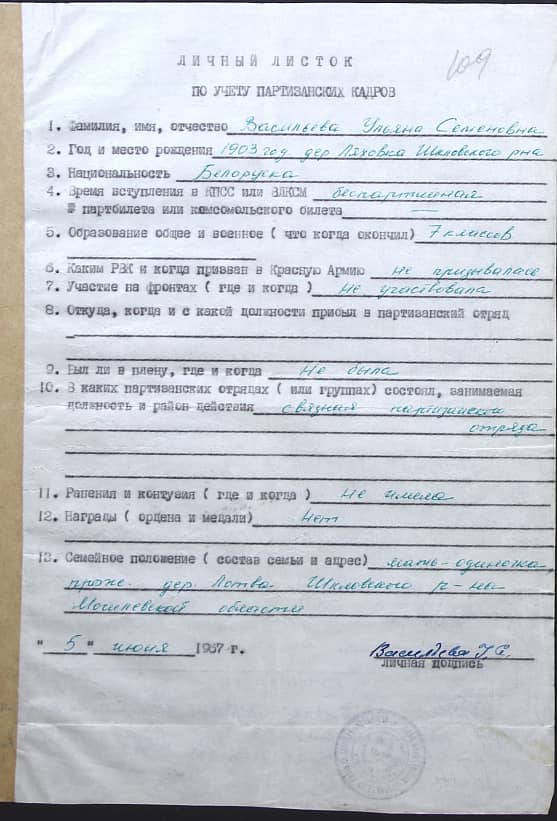 109
ЛИЧНЫЙ ЛИСТОК
ПО УЧЕТУ ПАРТИЗАНСКИХ КАДРОВ
1. Фамилия, имя, отчество Васильева Ульяна Семеновна
2. Год и место рождения 1903 год дер Ляховка Шкловского р-на
3. Национальность Белоруска
4. Время вступления в КПСС или ВЛКСМ беспартийная
№ партбилета или комсомольского билета —
5. Образование общее и военное ( что когда окончил) 7 классов
6. Каким РВК и когда призван в Красную Армию не призывалась
7. Участие на фронтах ( где и когда ) не участвовала
8. Откуда, когда и с какой должности прибыл в партизанский отряд
9. Был ли в плену, где и когда не была
10. В каких партизанских отрядах ( или группах) состоял, занимаемая
должность и район действия связная партизанского
отряда
11. Ранения и контузия ( где и когда ) не имела
12. Награды ( ордена и медали) нет
13. Семейное положение ( состав семьи и адрес) мать-одиночка,
прож. дер. Лотва Шкловского р-на
Могилевской области
" 5 " июня 1967 г. Васильева У.С.
личная подпись